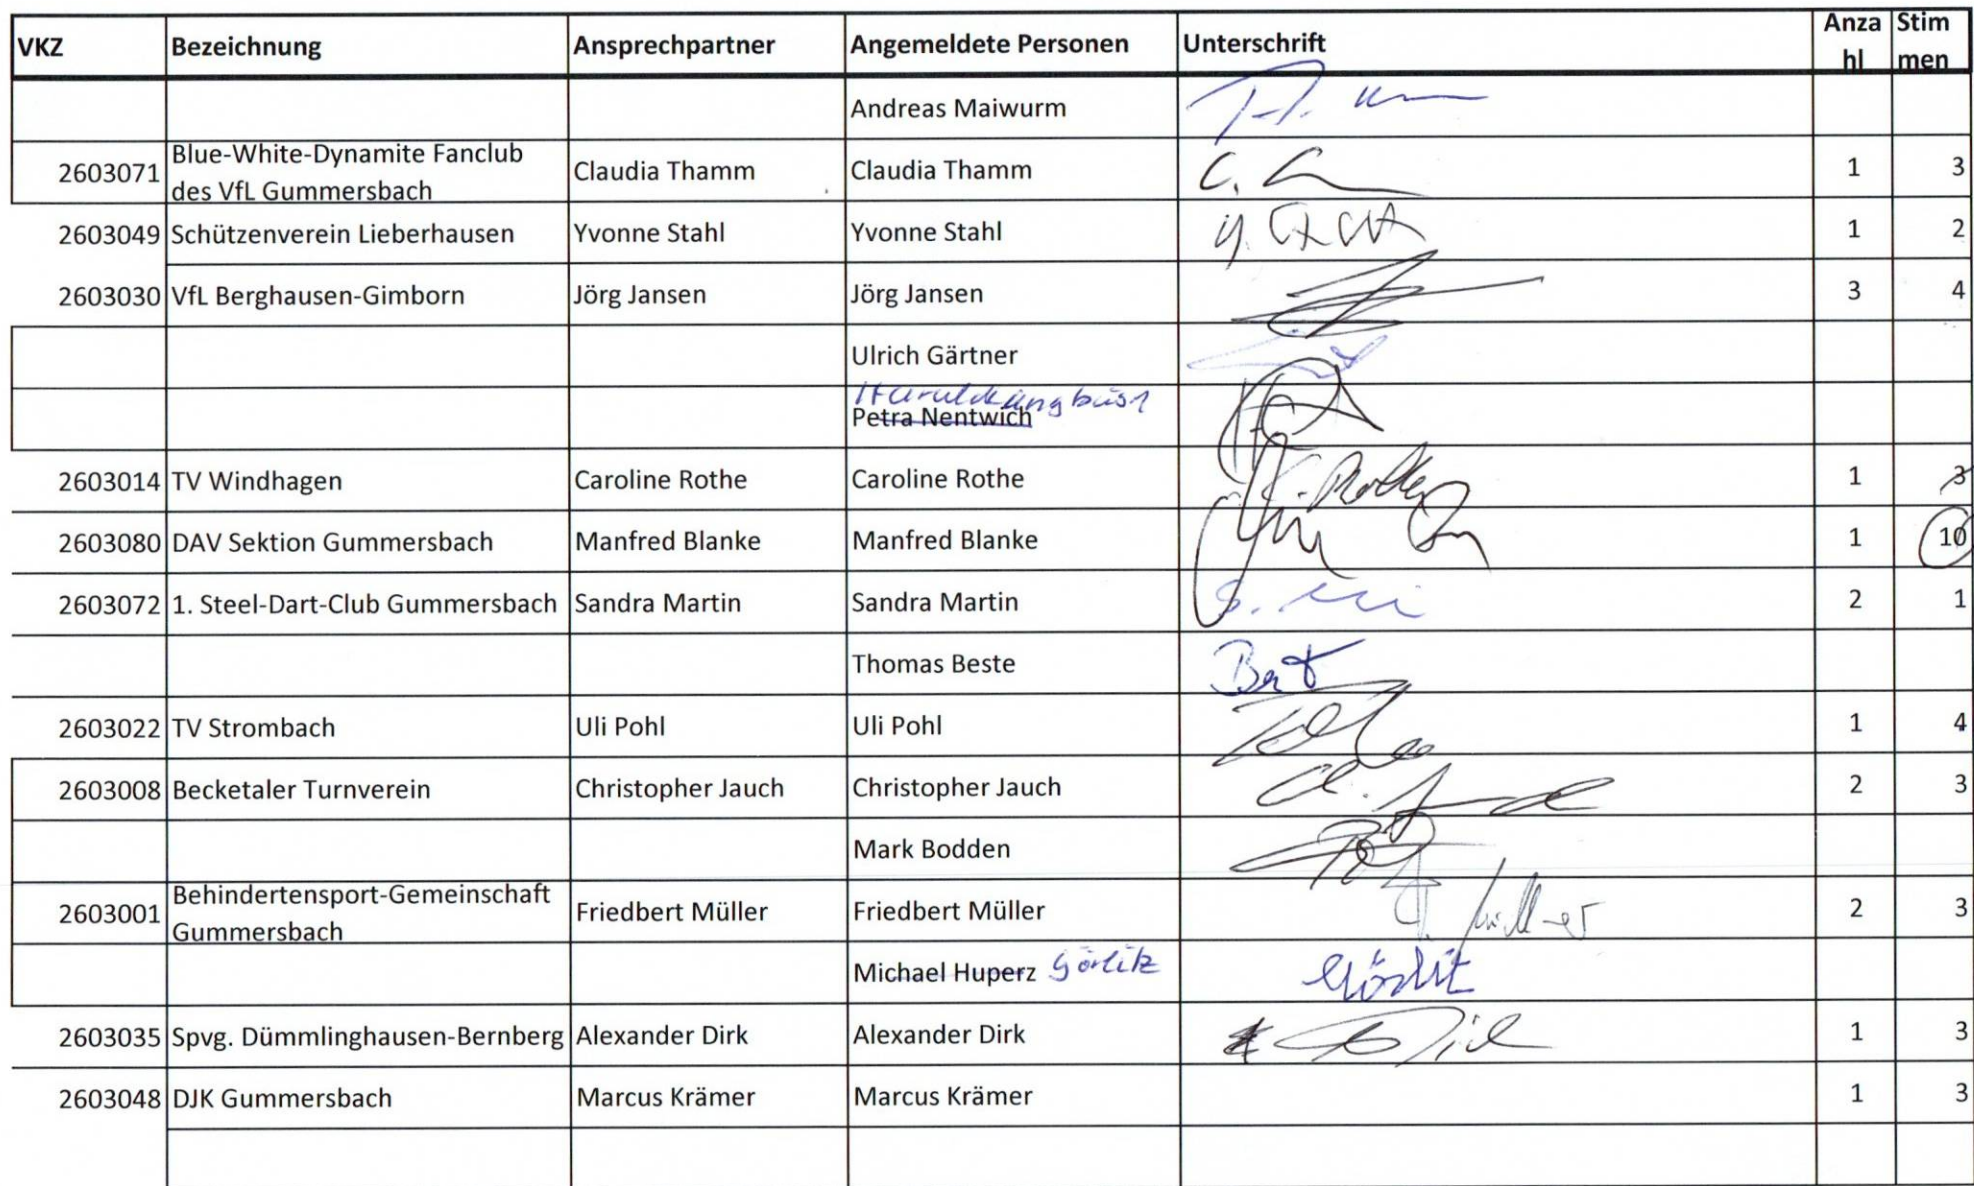 VKZ Bezeichnung Ansprechpartner Angemeldete Personen Unterschrift Anza hl Stim men
Andreas Maiwurm
2603071 Blue-White-Dynamite Fanclub des VfL Gummersbach Claudia Thamm Claudia Thamm C. 1 3
2603049 Schützenverein Lieberhausen Yvonne Stahl Yvonne Stahl 1 2
2603030 VfL Berghausen-Gimborn Jörg Jansen Jörg Jansen 3 4
Ulrich Gärtner
Petra Nentwich
2603014 TV Windhagen Caroline Rothe Caroline Rothe C. Rothe 1 3
2603080 DAV Sektion Gummersbach Manfred Blanke Manfred Blanke 1 10
2603072 1. Steel-Dart-Club Gummersbach Sandra Martin Sandra Martin 2 1
Thomas Beste
2603022 TV Strombach Uli Pohl Uli Pohl 1 4
2603008 Becketaler Turnverein Christopher Jauch Christopher Jauch 2 3
Mark Bodden
2603001 Behindertensport-Gemeinschaft Gummersbach Friedbert Müller Friedbert Müller 2 3
Michael Huperz Görlitz
2603035 Spvg. Dümmlinghausen-Bernberg Alexander Dirk Alexander Dirk 1 3
2603048 DJK Gummersbach Marcus Krämer Marcus Krämer 1 3